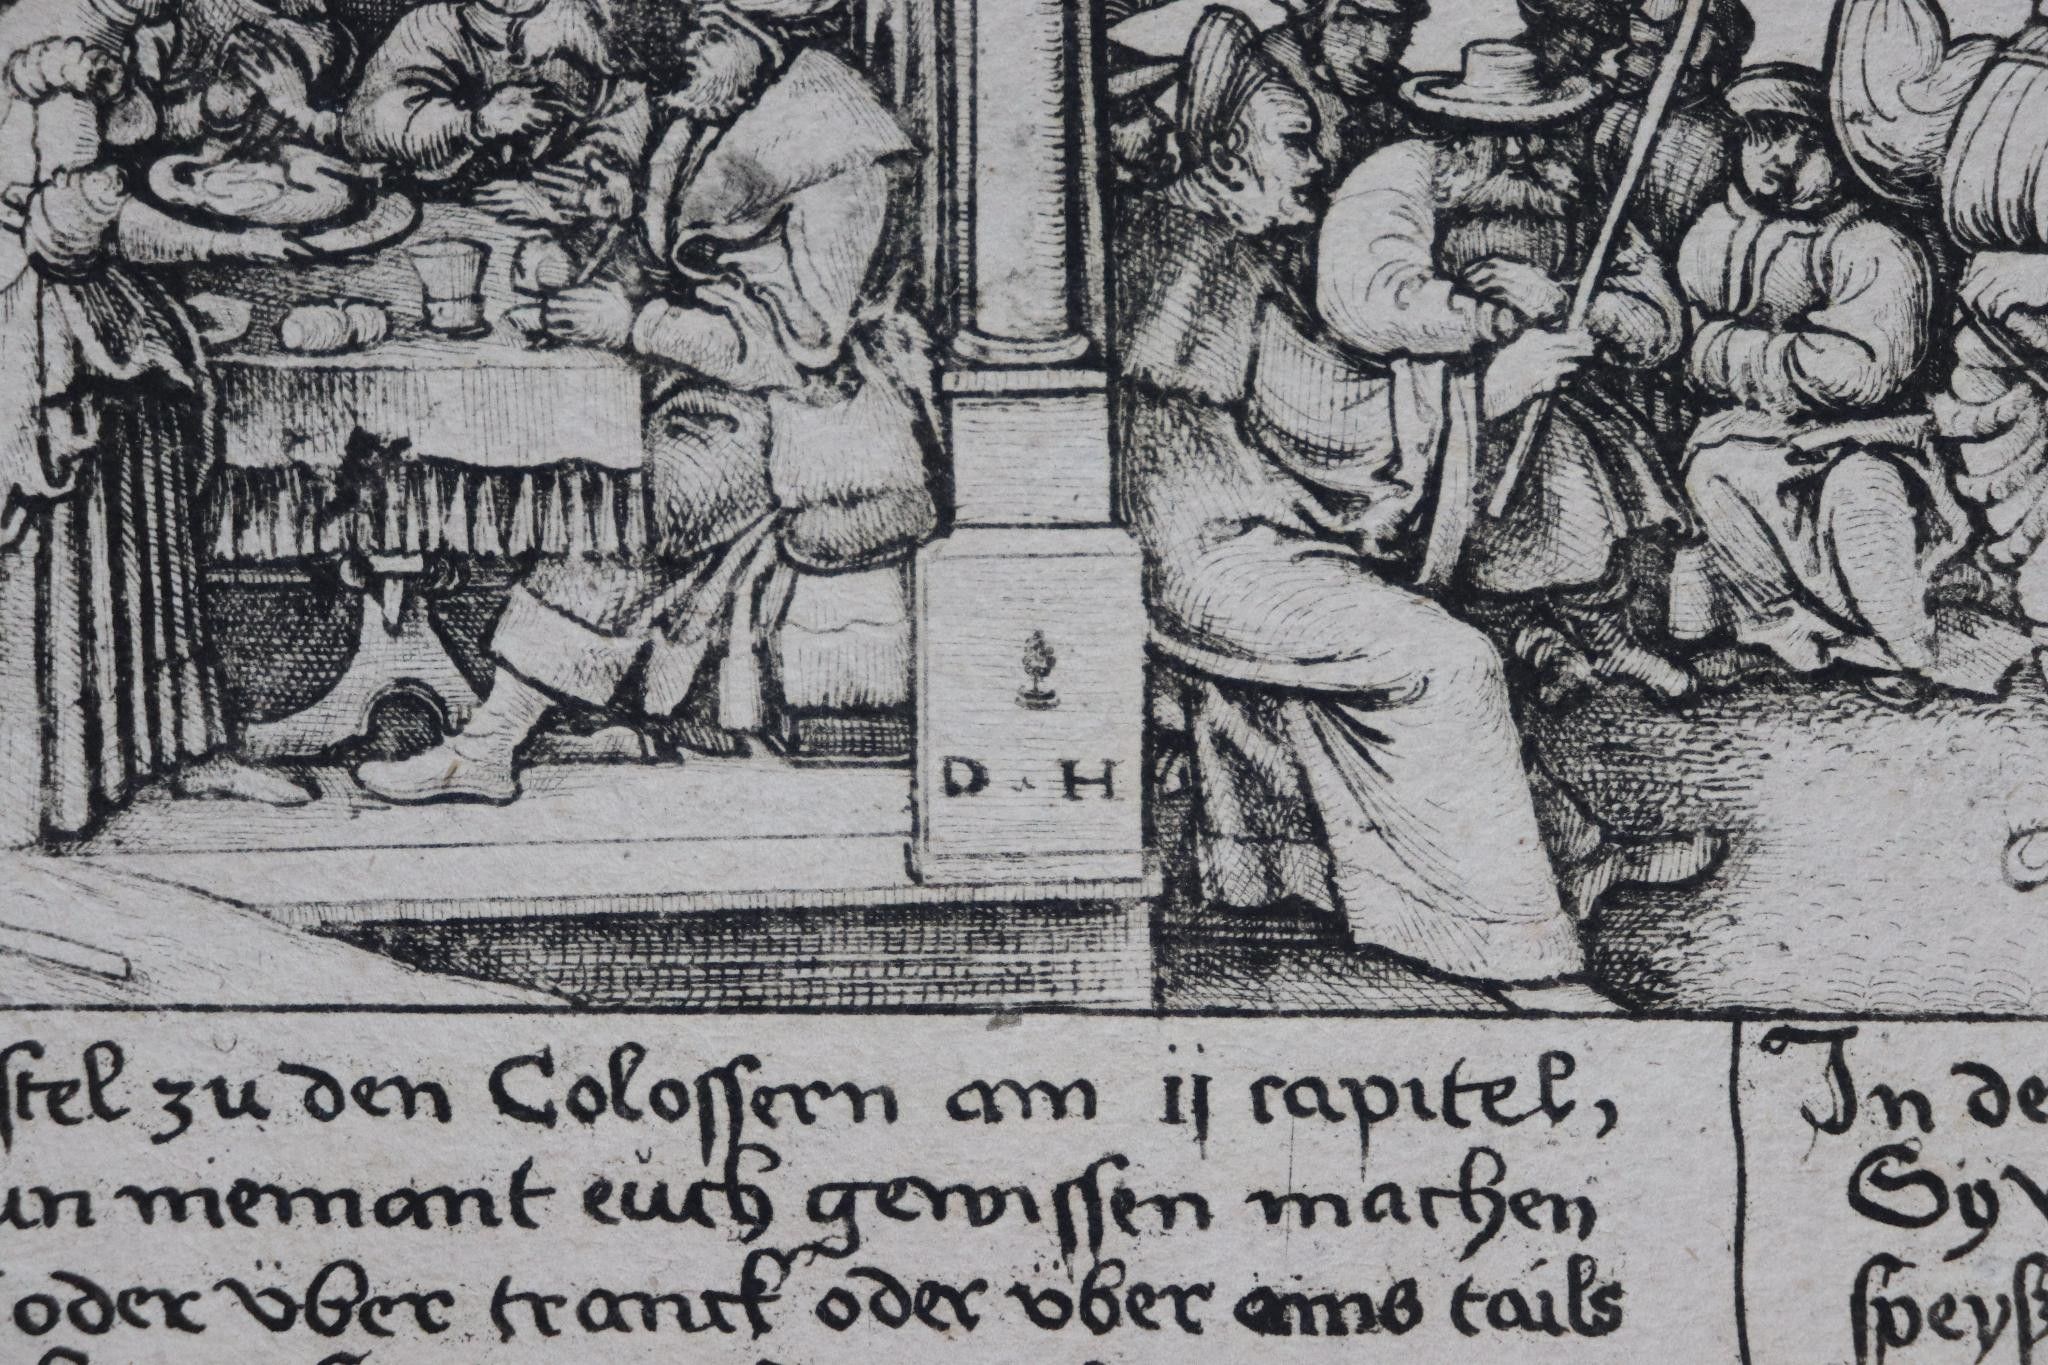 D · H
stel zu den Colossern am ij capitel,
un niemant euch gewissen machen
oder über tranck oder über ains tails
In de
Sy
speyß